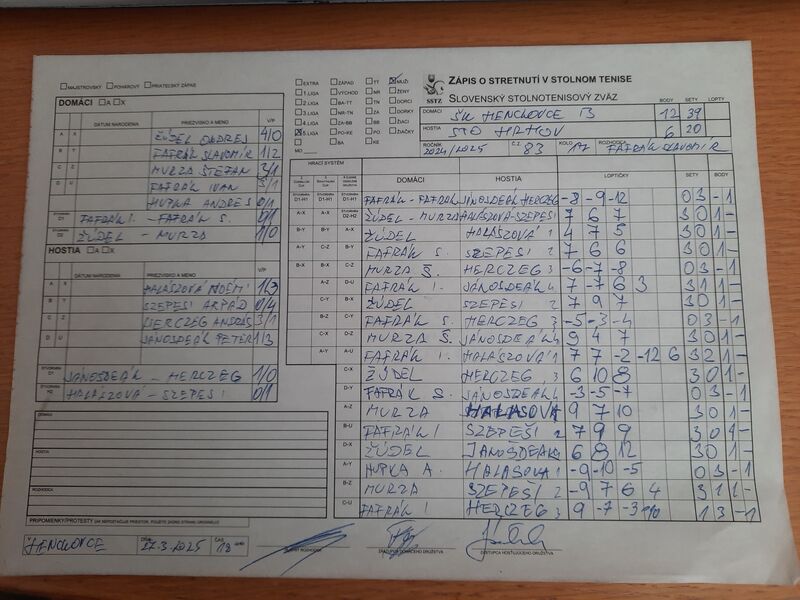 MAJSTROVSKÝ POHÁROVÝ PRIATEĽSKÝ ZÁPAS
EXTRA ZÁPAD TT MUŽI
1.LIGA VÝCHOD NR ŽENY
2.LIGA BA-TT TN DORCI
3.LIGA NR-TN ZA DORKY
4.LIGA ZA-BB BB ŽIACI
5.LIGA PO-KE PO ŽIAČKY
BA KE
MO
SSTZ
ZÁPIS O STRETNUTÍ V STOLNOM TENISE
SLOVENSKÝ STOLNOTENISOVÝ ZVÄZ
BODY SETY LOPTY
DOMÁCI ŠK HENCKOVCE B 12 39
HOSTIA STO HRHOV 6 20
ROČNÍK 2024/2025 Č.Z. 83 KOLO 17 ROZHODCA FAFRÁK SLAVOMÍR
DOMÁCI A X
DÁTUM NARODENIA PRIEZVISKO A MENO V/P
A X ŽÚDEL ONDREJ 4/0
B Y FAFRÁK SLAVOMÍR 1/2
C Z MURZA ŠTEFAN 3/1
D U FAFRÁK IVAN 3/1
HUPKA ANDREJ 0/1
ŠTVORHRA D1 FAFRÁK I. - FAFRÁK S. 0/1
ŠTVORHRA D2 ŽÚDEL - MURZA 1/0
HOSTIA A X
DÁTUM NARODENIA PRIEZVISKO A MENO V/P
A X HALÁSZOVÁ NOÉMI 1/3
B Y SZEPESI ARPÁD 0/4
C Z HERCZEG ANDRÁS 3/1
D U JÁNOSDEÁK PETER 1/3
ŠTVORHRA JÁNOSDEÁK - HERCZEG 1/0
ŠTVORHRA H2 HALÁSZOVÁ - SZEPESI 0/1
DOMÁCI
HOSTIA
ROZHODCA
PRIPOMIENKY/PROTESTY
HRACÍ SYSTÉM DOMÁCI HOSTIA LOPTIČKY SETY BODY
D1-H1 D1-H1 D1-H1 FAFRÁK - FAFRÁK JÁNOSDEÁK HERCZEG -8 -9 -12 0 3 -1
A-X A-X D2-H2 ŽÚDEL - MURZA HALÁSZOVÁ-SZEPESI 7 6 7 3 0 1 -
B-Y B-Y A-X ŽÚDEL HALÁSZOVÁ 1 4 7 5 3 0 1 -
A-Y C-Z B-Y FAFRÁK S. SZEPESI 2 7 6 6 3 0 1 -
B-X B-X C-Z MURZA Š. HERCZEG 3 -6 -7 -8 0 3 -1
A-Z D-U FAFRÁK I. JÁNOSDEÁK 4 7 -7 6 3 3 1 1 -
C-Y B-X ŽÚDEL SZEPESI 2 7 9 7 3 0 1 -
B-Z C-Y FAFRÁK S. HERCZEG 3 -5 -3 -4 0 3 -1
C-X D-Z MURZA Š. JÁNOSDEÁK 4 9 4 7 3 0 1 -
A-Y A-U FAFRÁK I. HALÁSZOVÁ 1 7 7 -2 -12 6 3 2 1 -
C-X ŽÚDEL HERCZEG 3 6 10 8 3 0 1 -
D-Y FAFRÁK S. JÁNOSDEÁK 4 -3 -5 -7 0 3 -1
A-Z MURZA HALASOVA 9 7 10 3 0 1 -
B-U FAFRÁK I SZEPEŠI 2 7 9 9 3 0 1 -
D-X ŽÚDEL JANOŠDEAK 6 8 12 3 0 1 -
A-Y HUPKA A. HALASOVA 1 -9 -10 -5 0 3 -1
B-Z MURZA SZEPEŠI 2 -9 7 6 4 3 1 1 -
C-U FAFRÁK I HERCZEG 3 9 -7 -3 1 3 -1
HENCKOVCE DŇA 27.3.2025 ČAS 18
VEDÚCI DOMÁCEHO DRUŽSTVA
ZÁSTUPCA HOSŤUJÚCEHO DRUŽSTVA